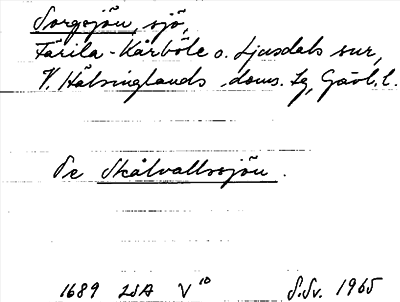 Sorgsjön, sjö,
Färila-Kårböle o. Ljusdals sur,
V. Hälsinglands doms. lg, Gävl. l.
Se Skålvallssjön.
1689 LSA V 10 S.Sv. 1965